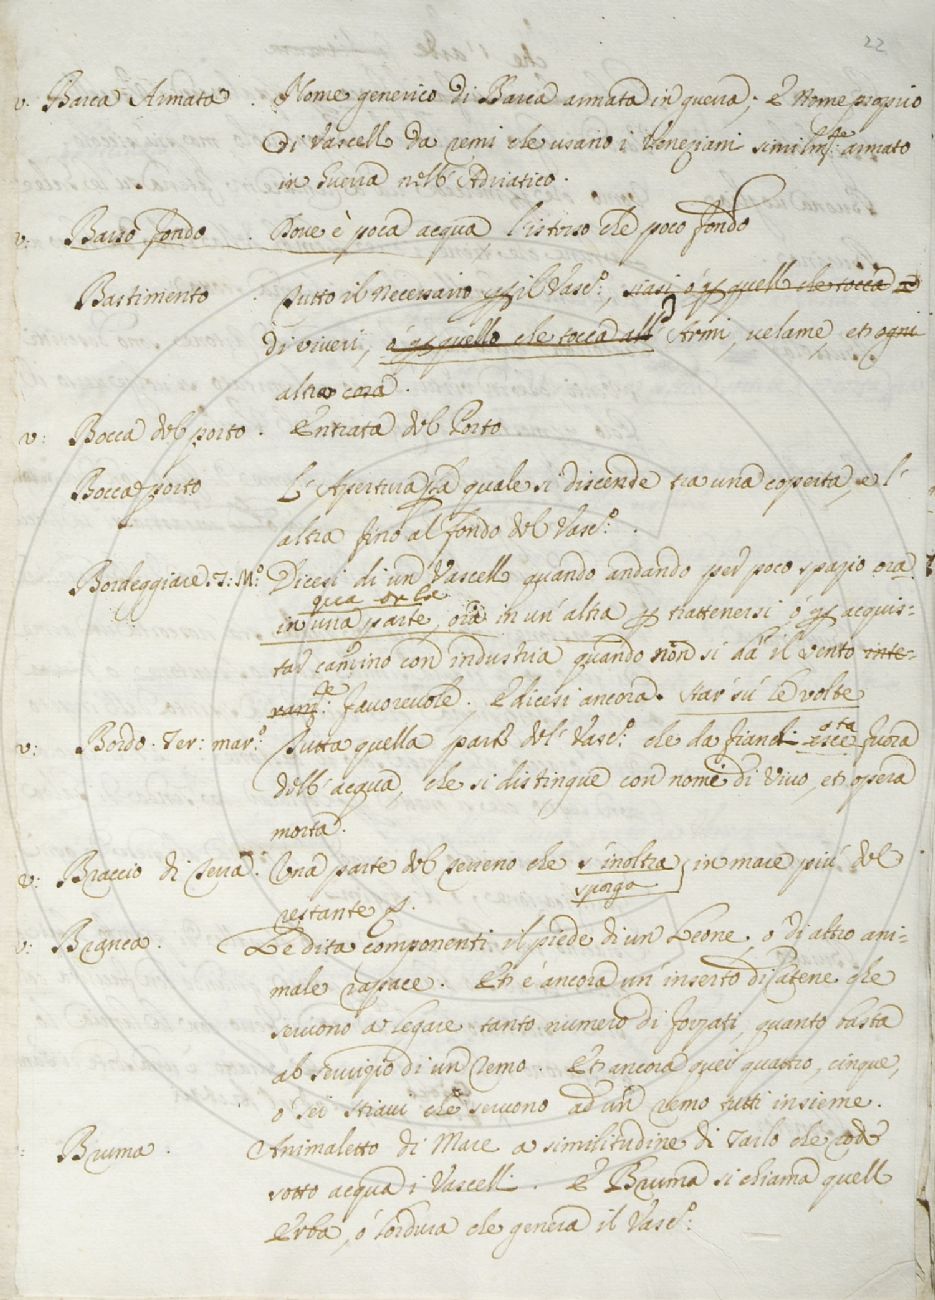 22
v. Barca Armata . Nome generico di Barca armata in guerra; È Nome proprio
di Vascelli da remi che usano i Veneziani similmte armato
in Guerra nell' Adriatico.
v: Basso fondo . Dove è poca acqua l'istesso che poco fondo
Bastimento . Tutto il necessario p il Vasco:, siasi ó p quell che tocca
di viveri, ó p quello che tocca all' Armi, velame, et ogni
altra cosa.
v: Bocca del porto . Entrata del Porto
Boccaporto L'Apertura p la quale si discende tra una coperta, e l'
altra fino al fondo del Vasco:.
Bordeggiare. T: Mo: Dicesi di un Vascello quando andando per poco spazio ora
qua or la
in una parte, ora in un' altra p trattenersi ó p acquis=
tar camino con industria quando non si dà il vento inte=
ramte: favorevole. E dicesi ancora. star sù le volte
v: Bordo. Ter: maro: Tutta quella parte del Vasco: che da fianchi esce fuora
dell' acqua, che si distingue con nome di Vivo, et opera
morta.
v: Braccio di Terra. Una parte del terreno che s'inoltra in mare più del
sporga
restante
v: Branca. Le dita componenti il piede di un Leone, o di altro ani=
male rapace. Et è ancora un' inserto di Catene che
servono a legare tanto numero di forzati, quanto basta
al servizio di un remo. Et ancora quei quattro, cinque,
o sei stiavi che servono ad un remo tutti insieme.
Bruma. Animaletto di Mare a similitudine di Tarlo che rode
sotto acqua i Vascelli. E Bruma si chiama quell
Erba, ó lordura che genera il Vasco: